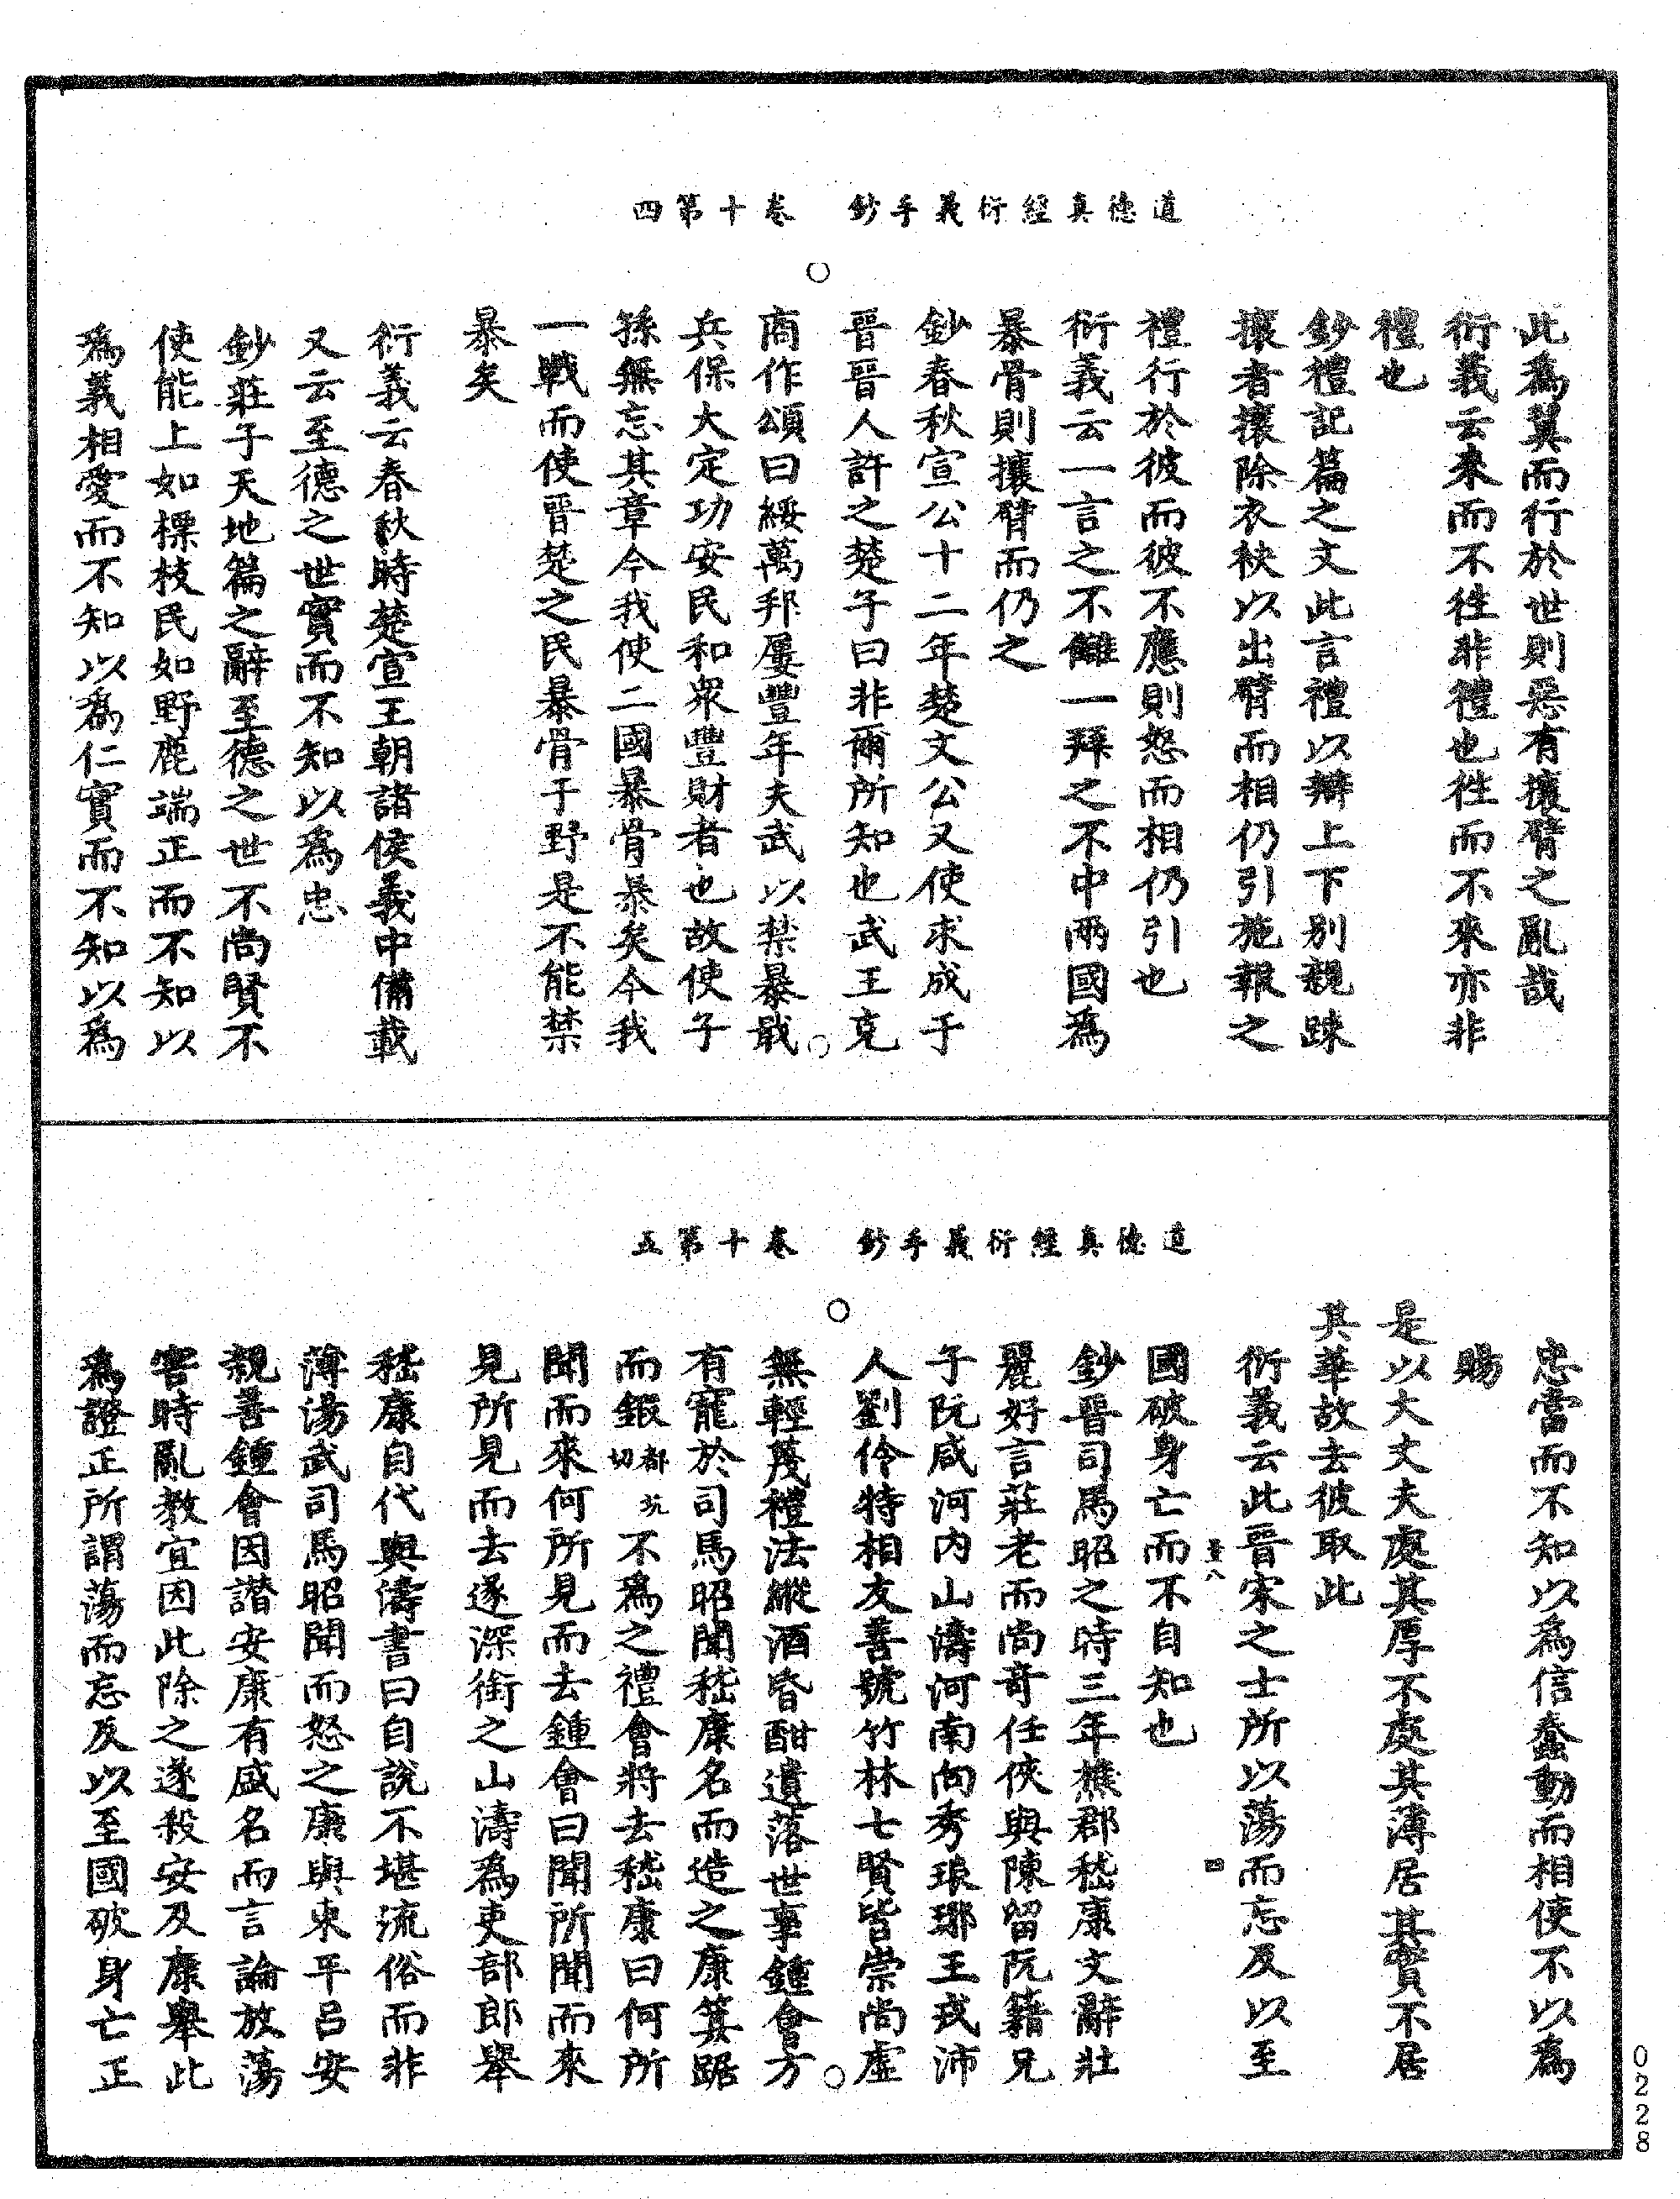 道德真經衍義手鈔　卷十第四
此為翼而行於世則惡有攘臂之亂哉
衍義云來而不徃非禮也徃而不來亦非
禮也
鈔禮記篇之文此言禮以辯上下別親踈
攘者攘除衣袂以出臂而相仍引施報之
禮行於彼而彼不應則怒而相仍引也
衍義云一言之不讎一拜之不中兩國為
暴骨則攘臂而仍之
鈔春秋宣公十二年楚文公又使求成于
晉晉人許之楚子曰非爾所知也武王克
商作頌曰綏萬邦屢豐年夫武以禁暴戢
兵保大定功安民和衆豐財者也故使子
孫無忘其章今我使二國暴骨暴矣今我
一戰而使晉楚之民暴骨于野是不能禁
暴矣
衍義云春秋時楚宣王朝諸侯義中備載
又云至德之世實而不知以為忠
鈔莊子天地篇之辭至德之世不尚賢不
使能上如標枝民如野鹿端正而不知以
為義相愛而不知以為仁實而不知以為
道德真經衍義手鈔　卷十第五
忠當而不知以為信蠢動而相使不以為
賜
是以大丈夫處其厚不處其薄居其實不居
其華故去彼取此
衍義云此晉宋之士所以蕩而忘及以至
八　四
國破身亡而不自知也
鈔晉司馬昭之時三年樵郡嵇康文辭壯
麗好言莊老而尚奇任俠與陳留阮籍兄
子阮咸河內山濤河南向秀琅琊王戎沛
人劉伶特相友善號竹林七賢皆崇尚虛
無輕蔑禮法縱酒昏酣遺落世事鍾會方
有寵於司馬昭聞嵇康名而造之康箕踞
而鍛都玩切不為之禮會將去嵇康曰何所
聞而來何所見而去鍾會曰聞所聞而來
見所見而去遂深銜之山濤為吏部郎舉
嵇康自代與濤書曰自說不堪流俗而非
薄湯武司馬昭聞而怒之康與東平呂安
親善鍾會因譖安康有盛名而言論放蕩
害時亂教宜因此除之遂殺安及康舉此
為證正所謂蕩而忘及以至國破身亡正
0228